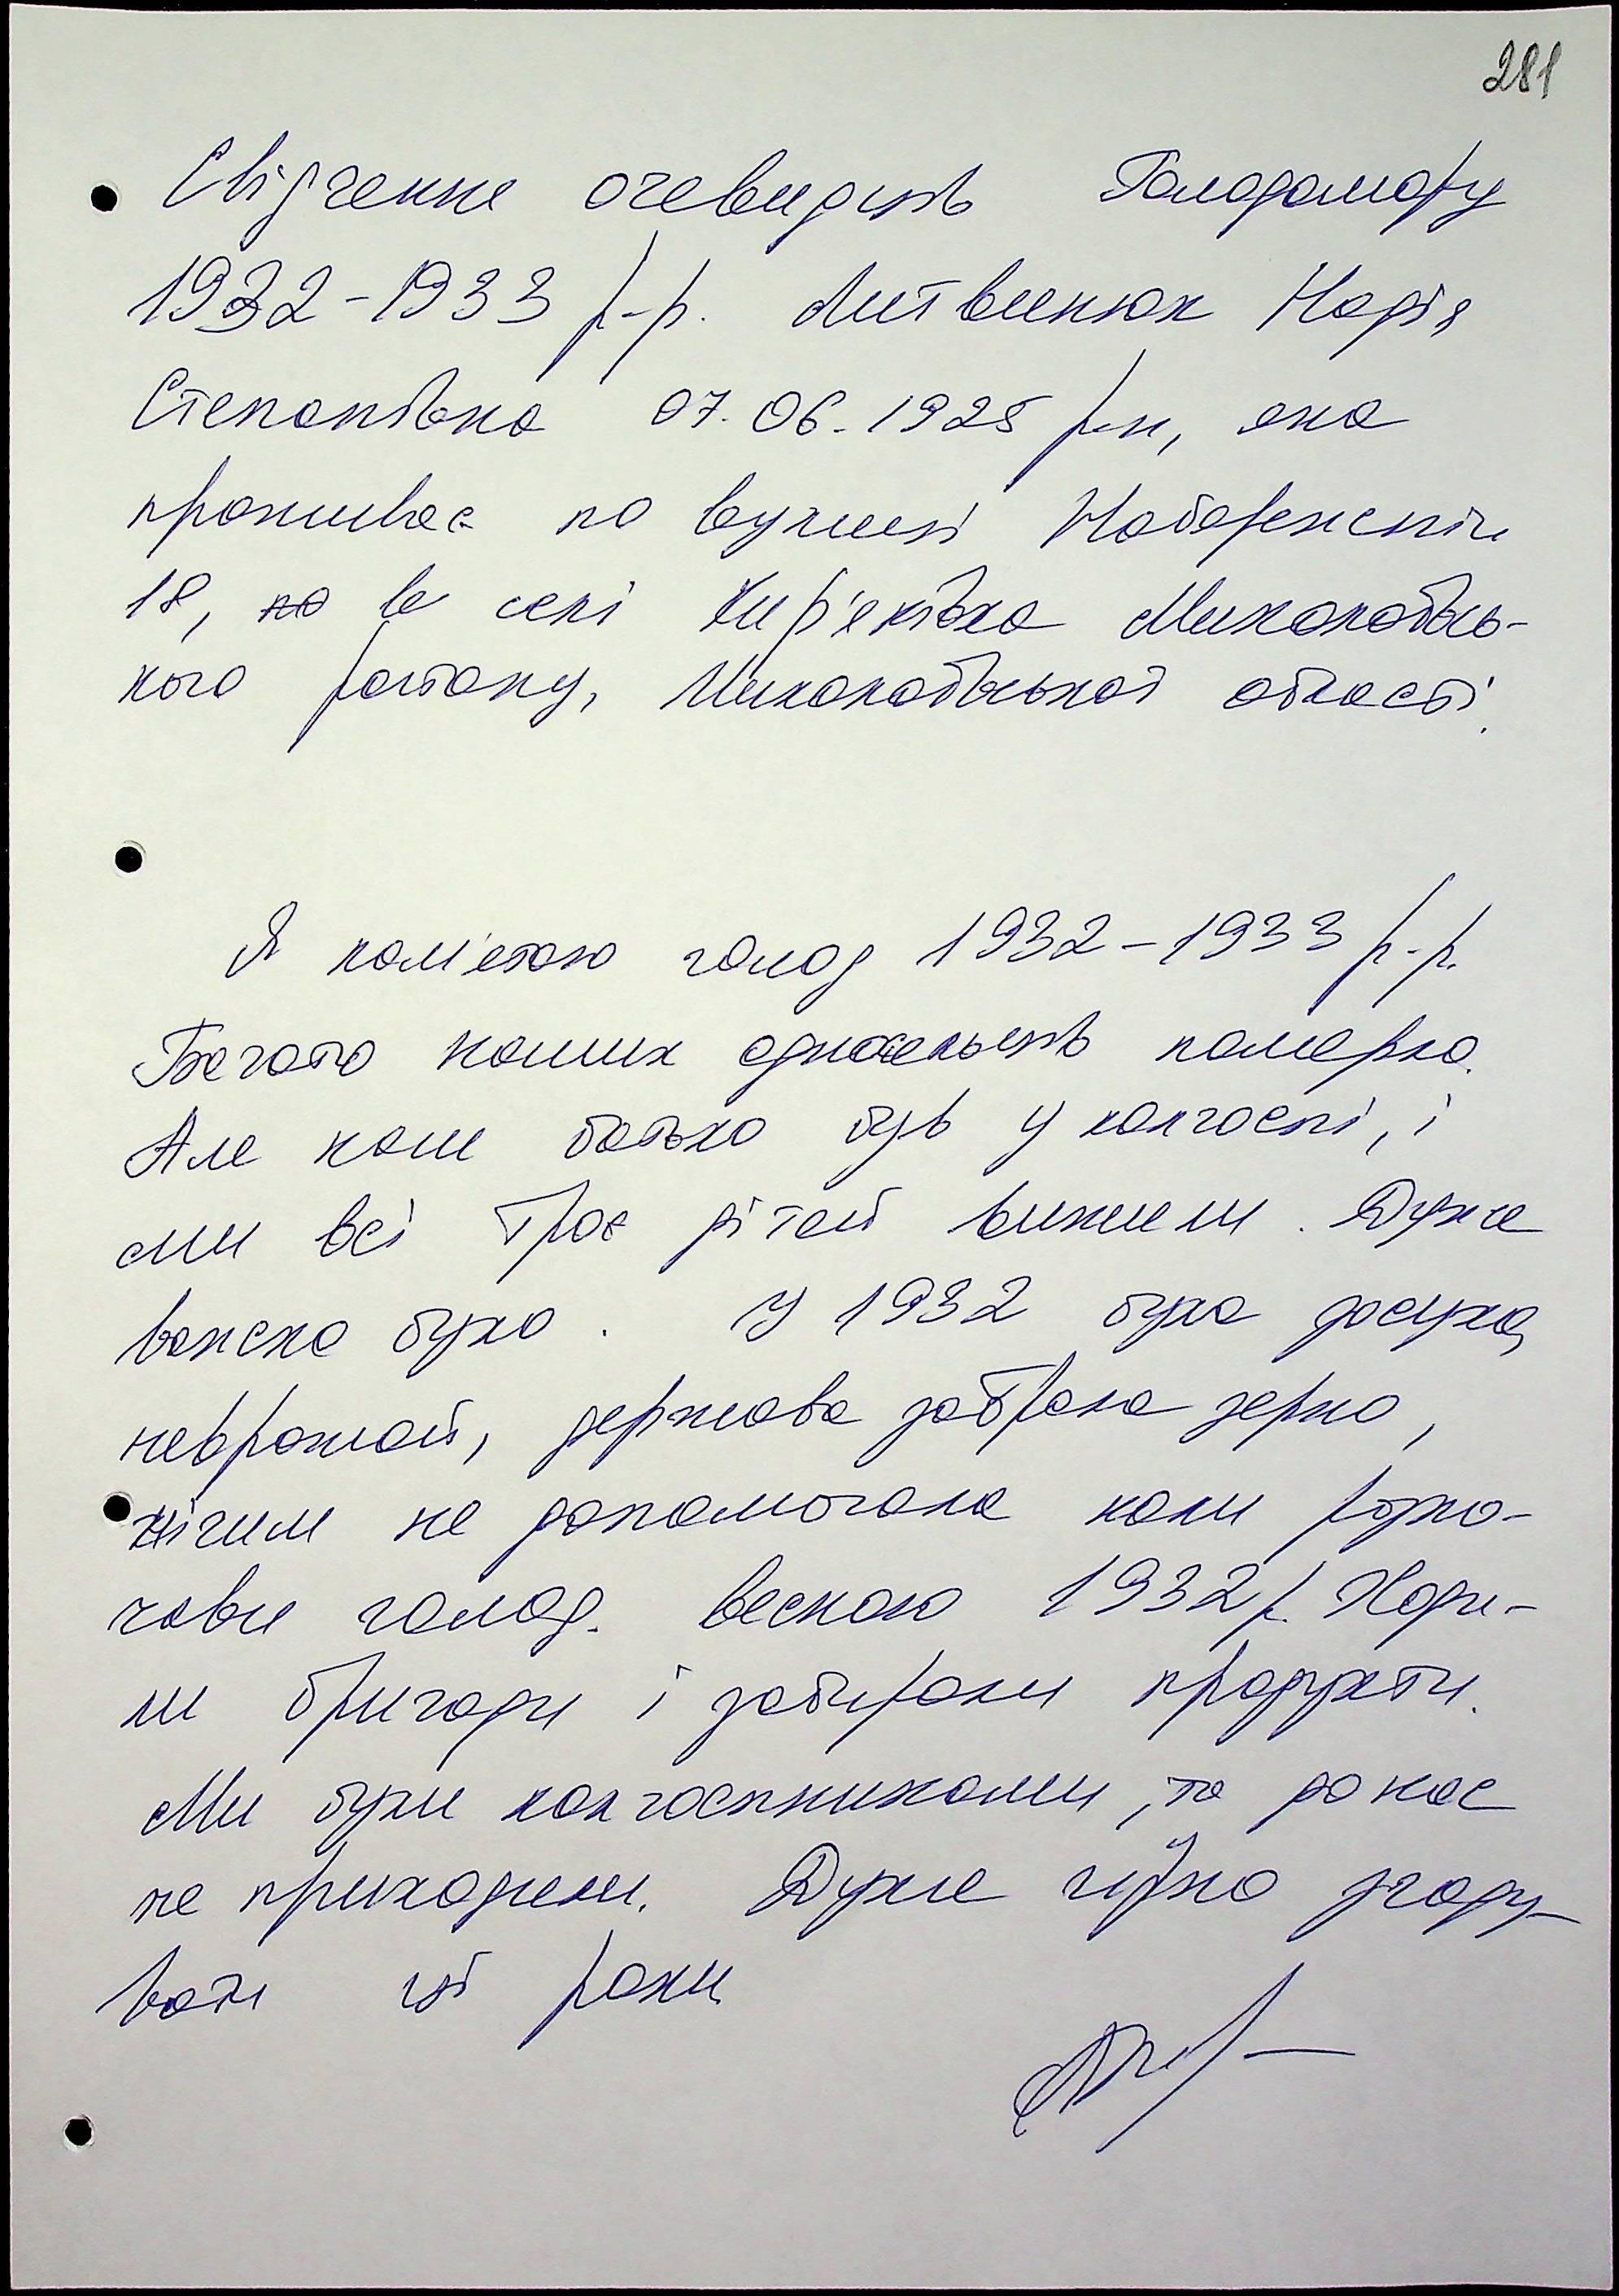 281
Свідчення очевидців Голодомору
1932-1933 р-р. Литвинюк Надія
Степанівна 07.06.1925 р.н, яка
проживає по вулиці Набережній
18, по в селі Кир'яківка Миколаївсь-
кого району, Миколаївської області.
Я пам'ятаю голод 1932-1933 р-р.
Багато наших односельців померло.
Але наш батько був у колгоспі, і
ми всі троє дітей вижили. Дуже
важко було. У 1932 була засуха,
неврожай, держава забрала зерно,
нічим не допомагала коли розпо-
чавсь голод. весною 1932р. Ходи-
ли бригади і забирали продукти.
Ми були колгоспниками, то до нас
не приходили. Дуже гірко згаду-
вати ці роки